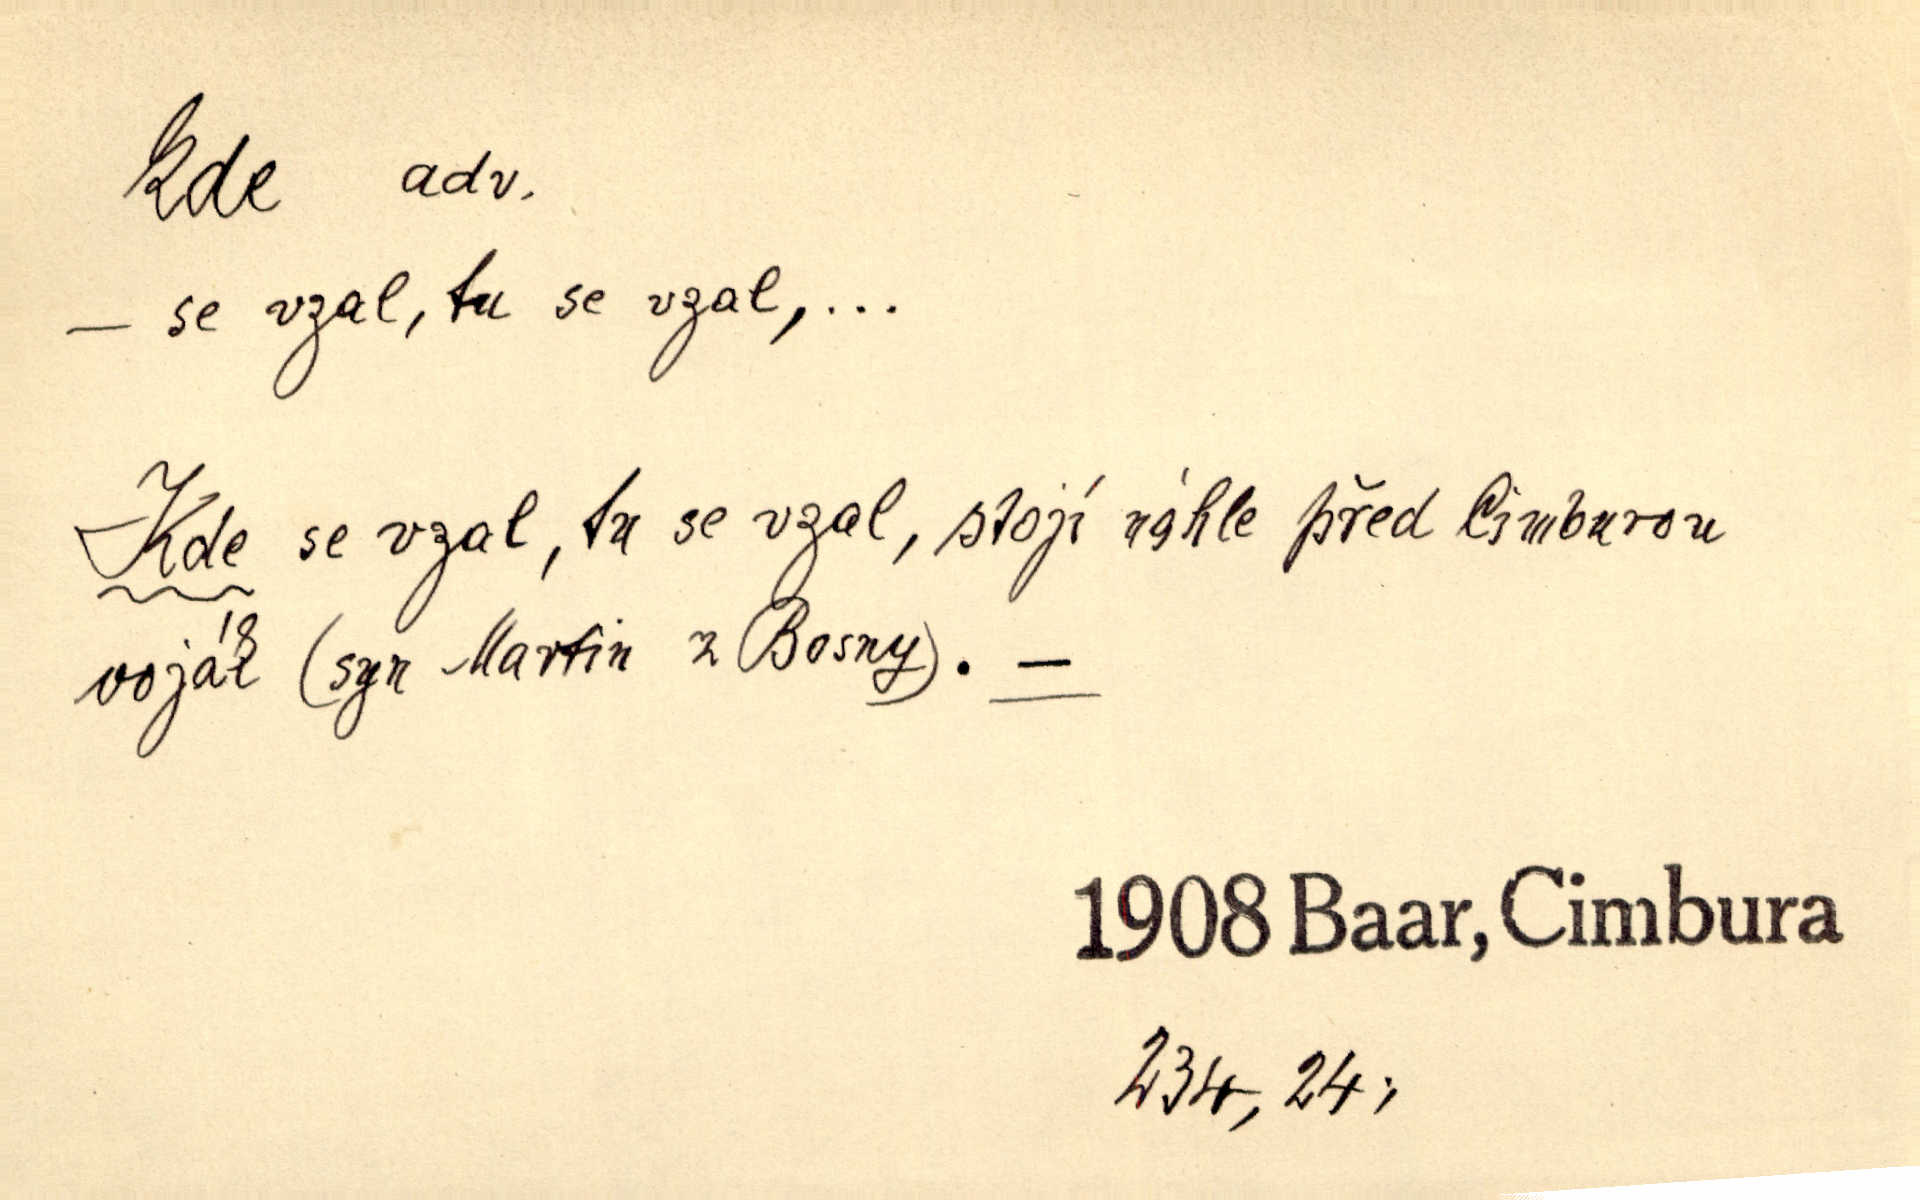 kde adv.
— se vzal, tu se vzal,...
Kde se vzal, tu se vzal, stojí náhle před Cimburou
voják (syn Martin z Bosny). —
1908 Baar, Cimbura
234, 24;